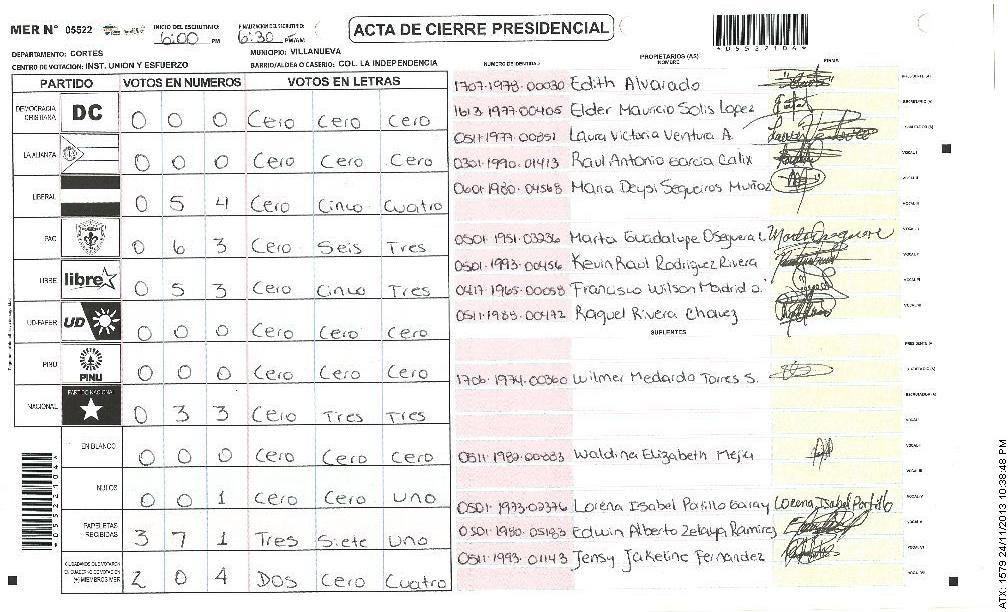 MER Nº 05522
INICIO DEL ESCRUTINIO: 6:00 PM
FINALIZACION DEL ESCRUTINIO: 6:30 PM/AM
ACTA DE CIERRE PRESIDENCIAL
*05522104*
DEPARTAMENTO: CORTES
MUNICIPIO: VILLANUEVA
CENTRO DE VOTACION: INST. UNION Y ESFUERZO
BARRIO/ALDEA O CASERIO: COL. LA INDEPENDENCIA
PARTIDO VOTOS EN NUMEROS VOTOS EN LETRAS
DEMOCRACIA CRISTIANA DC 0 0 0 Cero Cero Cero
LA ALIANZA 0 0 0 Cero Cero Cero
LIBERAL 0 5 4 Cero Cinco Cuatro
PAC 0 6 3 Cero Seis Tres
LIBRE libre 0 5 3 Cero Cinco Tres
UD-FAPER UD 0 0 0 Cero Cero Cero
PINU PINU 0 0 0 Cero Cero Cero
NACIONAL PARTIDO NACIONAL 0 3 3 Cero Tres Tres
EN BLANCO 0 0 0 Cero Cero Cero
NULOS 0 0 1 Cero Cero Uno
PAPELETAS RECIBIDAS 3 7 1 Tres Siete Uno
CIUDADANOS QUE VOTARON EN CUADERNO DE VOTACION (+) MIEMBROS MER 2 0 4 Dos Cero Cuatro
*05522104*
NUMERO DE IDENTIDAD
PROPIETARIOS (AS)
NOMBRE
FIRMA
1707-1978-00030 Edith Alvarado
1613-1977-00405 Elder Mauricio Solis Lopez
0511-1977-00851 Laura Victoria Ventura A.
0301-1990-01413 Raul Antonio Garcia Calix
0601-1980-04568 Maria Deysi Sequeiros Muñoz
0501-1951-03236 Marta Guadalupe Oseguera L.
0501-1993-00456 Kevin Raul Rodriguez Rivera
0417-1965-00058 Francisco Wilson Madrid
0511-1985-00472 Raquel Rivera Chavez
SUPLENTES
1706-1974-00360 Wilmer Medardo Torres S.
0511-1982-00883 Waldina Elizabeth Mejia
0501-1973-02376 Lorena Isabel Portillo Garay Lorena Isabel Portillo
0501-1980-05183 Edwin Alberto Zelaya Ramirez
0511-1993-01143 Jensy Jakeline Fernandez
ATX: 1579 24/11/2013 10:38:48 PM